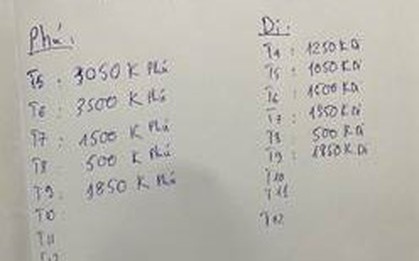 Phú:
T5: 3050 K Phú
T6: 3500 K Phú
T7: 1500 K Phú
T8: 500 K Phú
T9: 1850 K Phú
T10
T11
T12
Di:
T4: 1250 K Di
T5: 1050 K Di
T6: 1600 K Di
T7: 1550 K Di
T8: 500 K Di
T9: 1850 K Di
T10
T11
T12